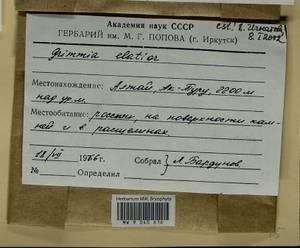 Академия наук СССР
ГЕРБАРИЙ им. М. Г. ПОПОВА (г. Иркутск)
Grimmia elatior
Местонахождение: Алтай, Ак-Туру 2200 м
над ур. м.
Местообитание: россыпи, на поверхности кам-
ней и в расщелинах
18/VII 1966 г. Собрал Л. Бардунов
№ Определил
Herbarium MW, Bryophyta